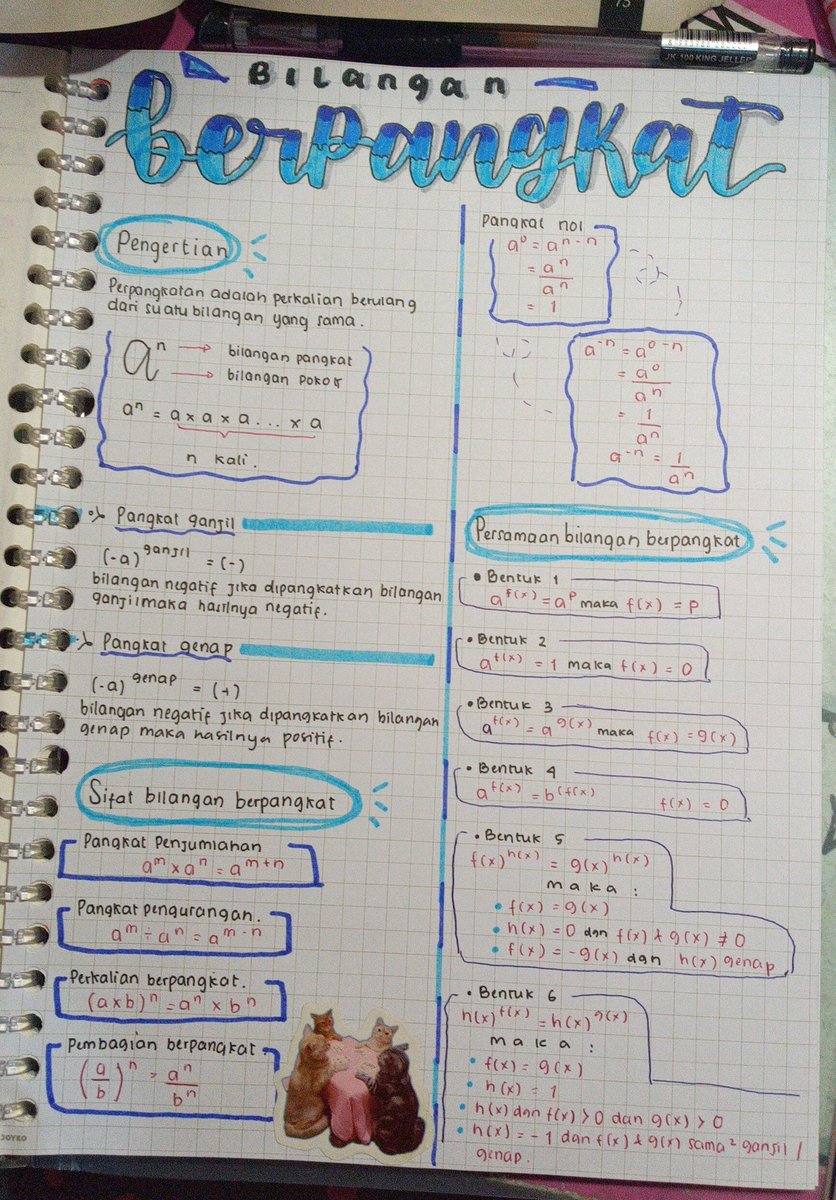 75
JK 100 KING JELLER
BILangan
berpangkat
Pengertian
Perpangkatan adalah perkalian berulang
dari suatu bilangan yang sama.
aⁿ → bilangan pangkat
→ bilangan pokok
aⁿ = a x a x a ... x a
n kali.
Pangkat ganjil
(-a)^ganjil = (-)
bilangan negatif jika dipangkatkan bilangan
ganjil maka hasilnya negatif.
Pangkat genap
(-a)^genap = (+)
bilangan negatif jika dipangkatkan bilangan
genap maka hasilnya positif.
Sifat bilangan berpangkat
Pangkat Penjumlahan
a^m x a^n = a^(m+n)
Pangkat pengurangan.
a^m ÷ a^n = a^(m-n)
Perkalian berpangkat.
(axb)^n = a^n x b^n
Pembagian berpangkat
(a/b)^n = a^n/b^n
JOYKO
Pangkat nol
a^0 = a^(n-n)
= a^n/a^n
= 1
a^(-n) = a^(0-n)
= a^0/a^n
= 1/a^n
a^(-n) = 1/a^n
Persamaan bilangan berpangkat
• Bentuk 1
a^f(x) = a^p maka f(x) = p
• Bentuk 2
a^f(x) = 1 maka f(x) = 0
• Bentuk 3
a^f(x) = a^g(x) maka f(x) = g(x)
• Bentuk 4
a^f(x) = b^(f(x) f(x) = 0
• Bentuk 5
f(x)^h(x) = g(x)^h(x)
maka :
• f(x) = g(x)
• h(x) = 0 dan f(x) & g(x) ≠ 0
• f(x) = -g(x) dan h(x) genap
• Bentuk 6
h(x)^f(x) = h(x)^g(x)
maka :
• f(x) = g(x)
• h(x) = 1
• h(x) dan f(x) > 0 dan g(x) > 0
• h(x) = -1 dan f(x) & g(x) sama² ganjil /
genap.